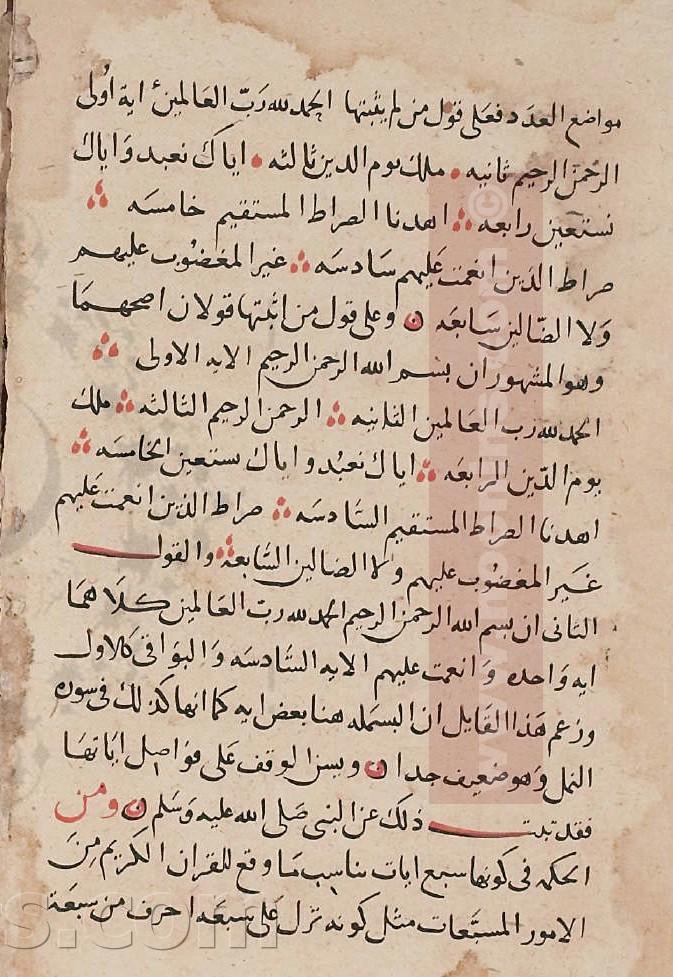 مواضع العدد فعلى قول من لم يثبتها الحمد لله رَبّ العَالمين اية اُولى
الرحمن الرحيم ثانيه ملك يوم الدين ثالثه اياك نعبد وَاياك
نستعين رابعه اهدنا الصراط المستقيم خامسه
صراط الذين انعمت عَليهم سَادسَه غير المغضُوب عليهم
وَلا الضّالين سَابعَه وعلى قول من اثبتها قولان اصحهمَا
وهو المشهور ان بسم الله الرحمن الرحيم الايه الاولى
الحمد لله رب العَالمين الثانيه الرحمن الرحيم الثالثه ملك
يوم الدّين الرابعَه اياك نعبُد واياك نستعين الخامسَه
اهدنا الصراط المستقيم السَّادسَه صراط الذين انعمت عَليهم
غَير المغضُوب عليهم ولا الضالين السَّابعَه والقول
الثانى ان بسم الله الرحمن الرحيم الحمد لله رب العَالمين كلاهمَا
ايه وَاحده وَانعمت عليهم الايه السَّادسَه وَالبوَاقى كالاول
وزعم هَذا القايل ان البسمله هنا بعض ايه كما انها كذلك فى سوره
النمل وَهو ضعيف جدا ويسن الوقف عَلى فوَاصل ايَاتهَا
فقد ثبت ذلك عن النبى صَلى الله عليه وَسَلم ومن
الحكمه فى كونها سبع ايات يناسب مَا وقع للقران الكريم مِنَ
الامور المسبّعات مثل كونه نزل عَلى سَبعَه احرف من سَبعَة
www.
s.com